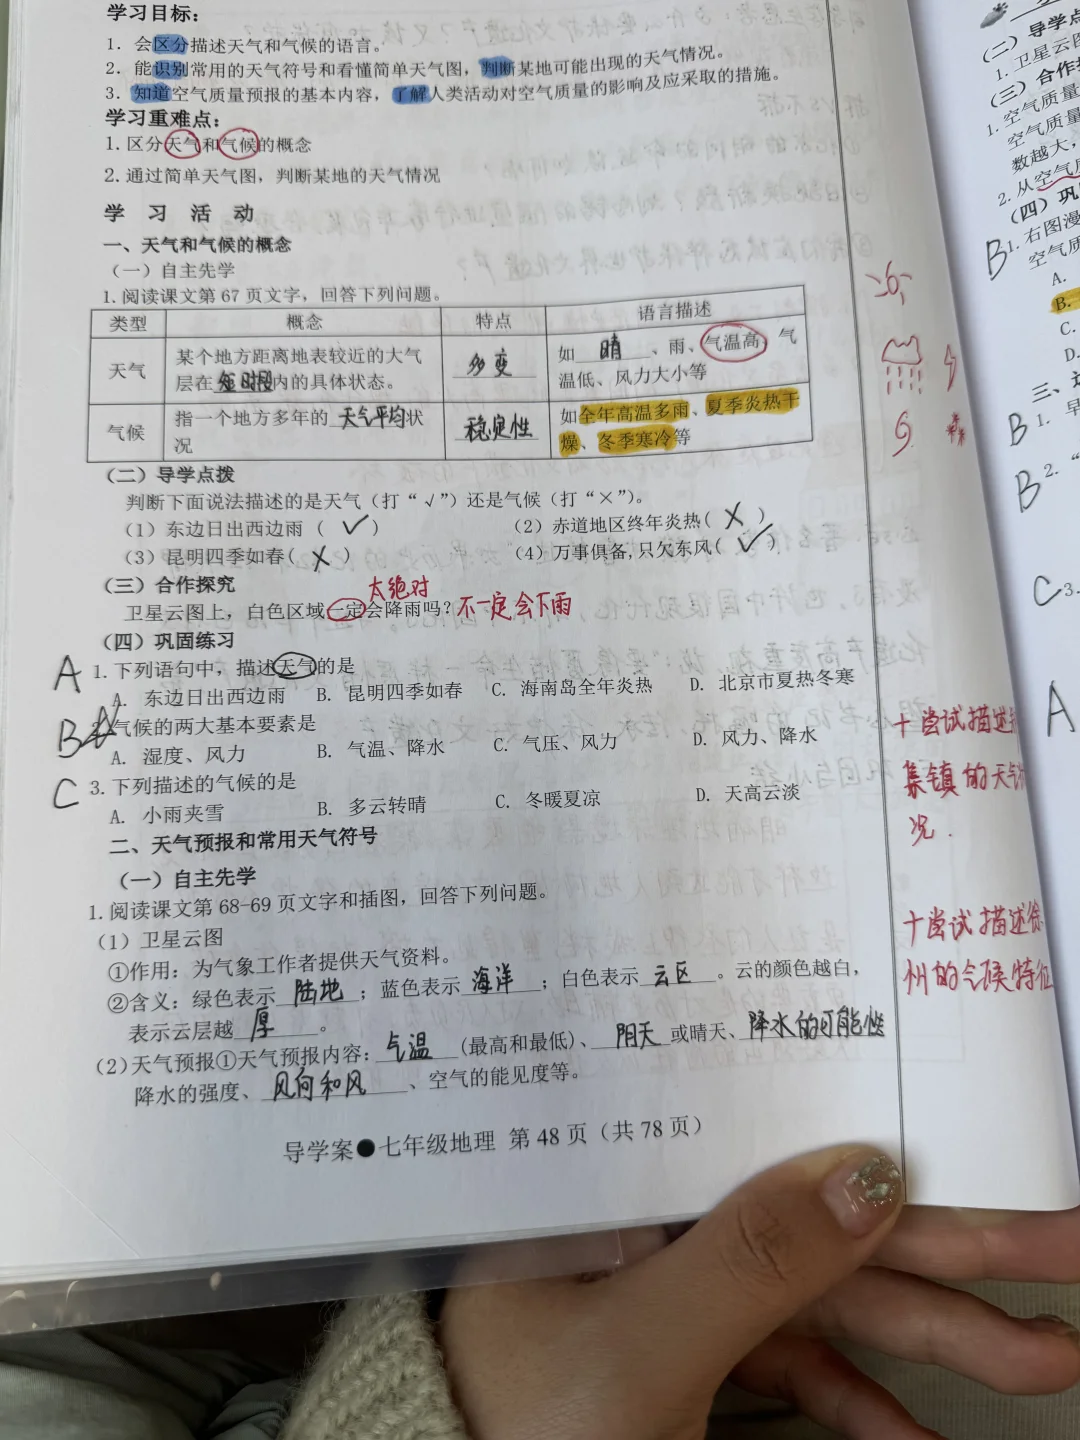 学习目标：
1. 会区分描述天气和气候的语言。
2. 能识别常用的天气符号和看懂简单天气图，判断某地可能出现的天气情况。
3. 知道空气质量预报的基本内容，了解人类活动对空气质量的影响及应采取的措施。
学习重难点：
1. 区分天气和气候的概念
2. 通过简单天气图，判断某地的天气情况
学 习 活 动
一、天气和气候的概念
（一）自主先学
1. 阅读课文第 67 页文字，回答下列问题。
类型 概念 特点 语言描述
天气 某个地方距离地表较近的大气层在短时段内的具体状态。 多变 如 晴 、雨、气温高、气温低、风力大小等
气候 指一个地方多年的 天气平均状况 稳定性 如全年高温多雨、夏季炎热干燥、冬季寒冷等
（二）导学点拨
判断下面说法描述的是天气（打“√”）还是气候（打“×”）。
（1）东边日出西边雨（ ✓ ） （2）赤道地区终年炎热（ X ）
（3）昆明四季如春（ X ） （4）万事俱备,只欠东风（ ✓ ）
（三）合作探究
太绝对
卫星云图上，白色区域一定会降雨吗？不一定会下雨
（四）巩固练习
A 1. 下列语句中，描述天气的是
A. 东边日出西边雨 B. 昆明四季如春 C. 海南岛全年炎热 D. 北京市夏热冬寒
B 气候的两大基本要素是
A. 湿度、风力 B. 气温、降水 C. 气压、风力 D. 风力、降水
C 3. 下列描述的气候的是
A. 小雨夹雪 B. 多云转晴 C. 冬暖夏凉 D. 天高云淡
二、天气预报和常用天气符号
（一）自主先学
1. 阅读课文第 68-69 页文字和插图，回答下列问题。
（1）卫星云图
①作用：为气象工作者提供天气资料。
②含义：绿色表示 陆地 ；蓝色表示 海洋 ；白色表示 云区 。云的颜色越白，
表示云层越 厚 。
（2）天气预报①天气预报内容： 气温 (最高和最低)、 阴天 或晴天、降水的可能性
降水的强度、 风向和风 、空气的能见度等。
导学案●七年级地理 第 48 页（共 78 页）
十尝试描述
集镇的天气
况.
十尝试描述徐
州的气候特征
（二）导学点
1. 卫星云图
（三）合作探
1. 空气质量
空气质量
数越大，
2. 从空气质
（四）巩
B 1. 右图漫
空气质
A.
B.
C.
D.
三、
B 1. 早
B 2. “
C 3.
A